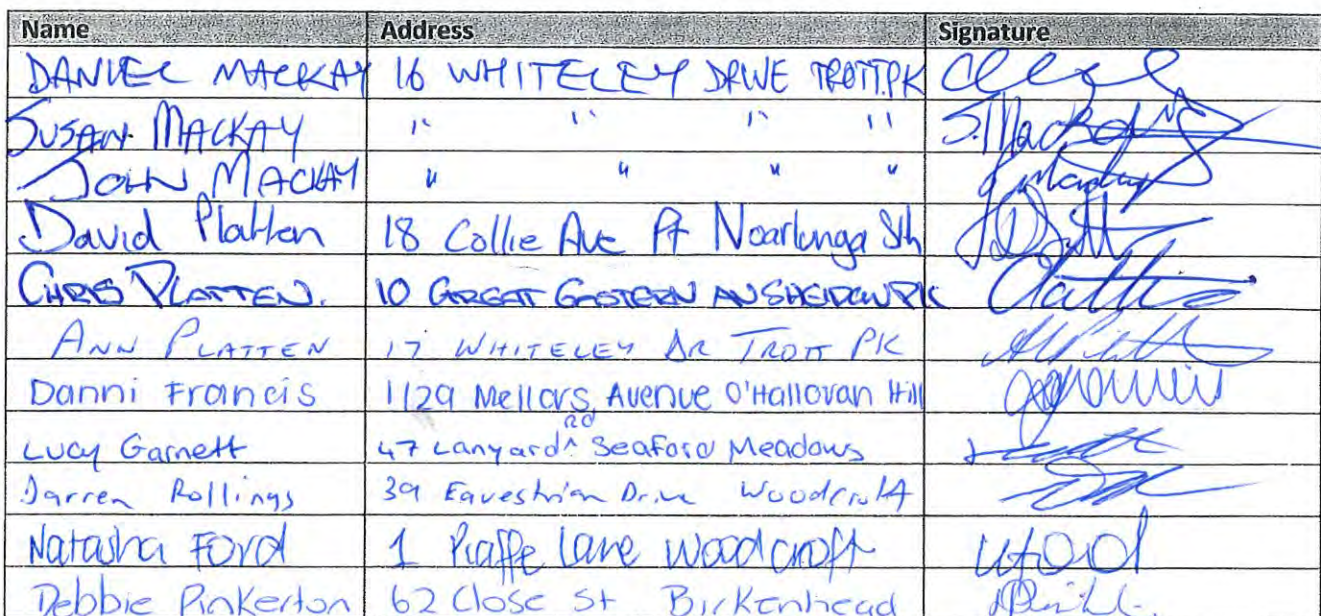 Name Address Signature
DANIEL MACKAY 16 WHITELEY DRIVE TROTT.PK
SUSAN MACKAY " " " " S. Mackay
JOHN MACKAY " " " "
David Platten 18 Collie Ave Pt Noarlunga Sth
CHRIS PLATTEN. 10 GREAT EASTERN AV SHEIDOW PK
ANN PLATTEN 17 WHITELEY DR TROTT PK
Danni Francis 1/29 Mellors Avenue O'Halloran Hill
Lucy Garnett 47 Lanyard Rd Seaford Meadows
Darren Rollings 39 Equestrian Drive Woodcroft
Natasha Ford 1 Piaffe Lane Woodcroft
Debbie Pinkerton 62 Close St Birkenhead